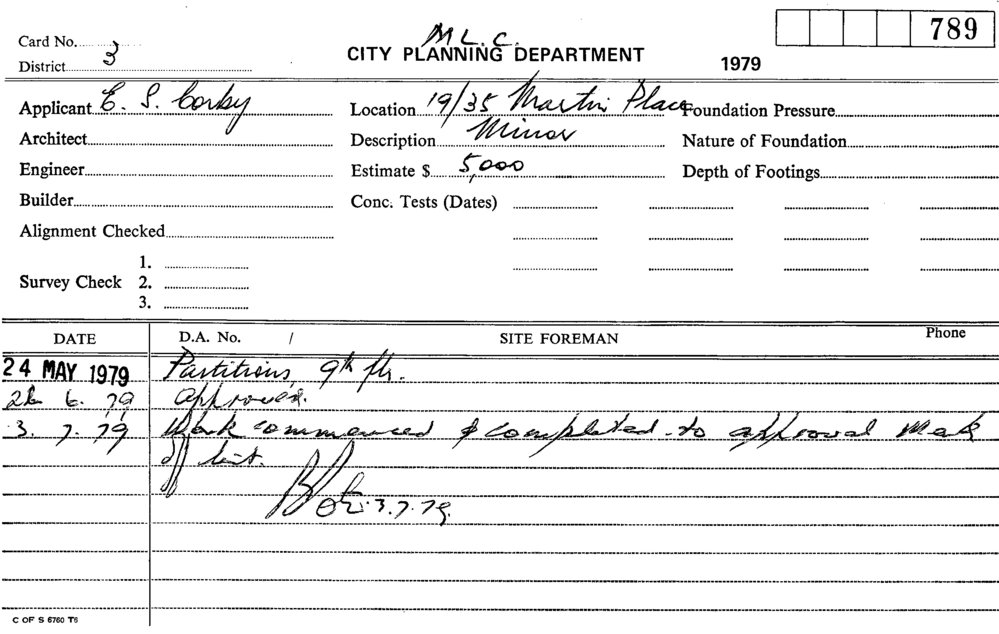 M L. C.
789
Card No.
CITY PLANNING DEPARTMENT
1979
District 3
Applicant E. S. Corby
Location 19/35 Martin Place
Foundation Pressure
Architect
Description Minor
Nature of Foundation
Engineer
Estimate $ 5,000
Depth of Footings
Builder
Conc. Tests (Dates)
Alignment Checked
Survey Check 1.
2.
3.
DATE D.A. No. / SITE FOREMAN Phone
24 MAY 1979 Partitions, 9th flr.
26. 6. 79 approved.
3. 7. 79 Work commenced & completed to approval Mark
off list.
3.7.79.
C OF S 6760 T6